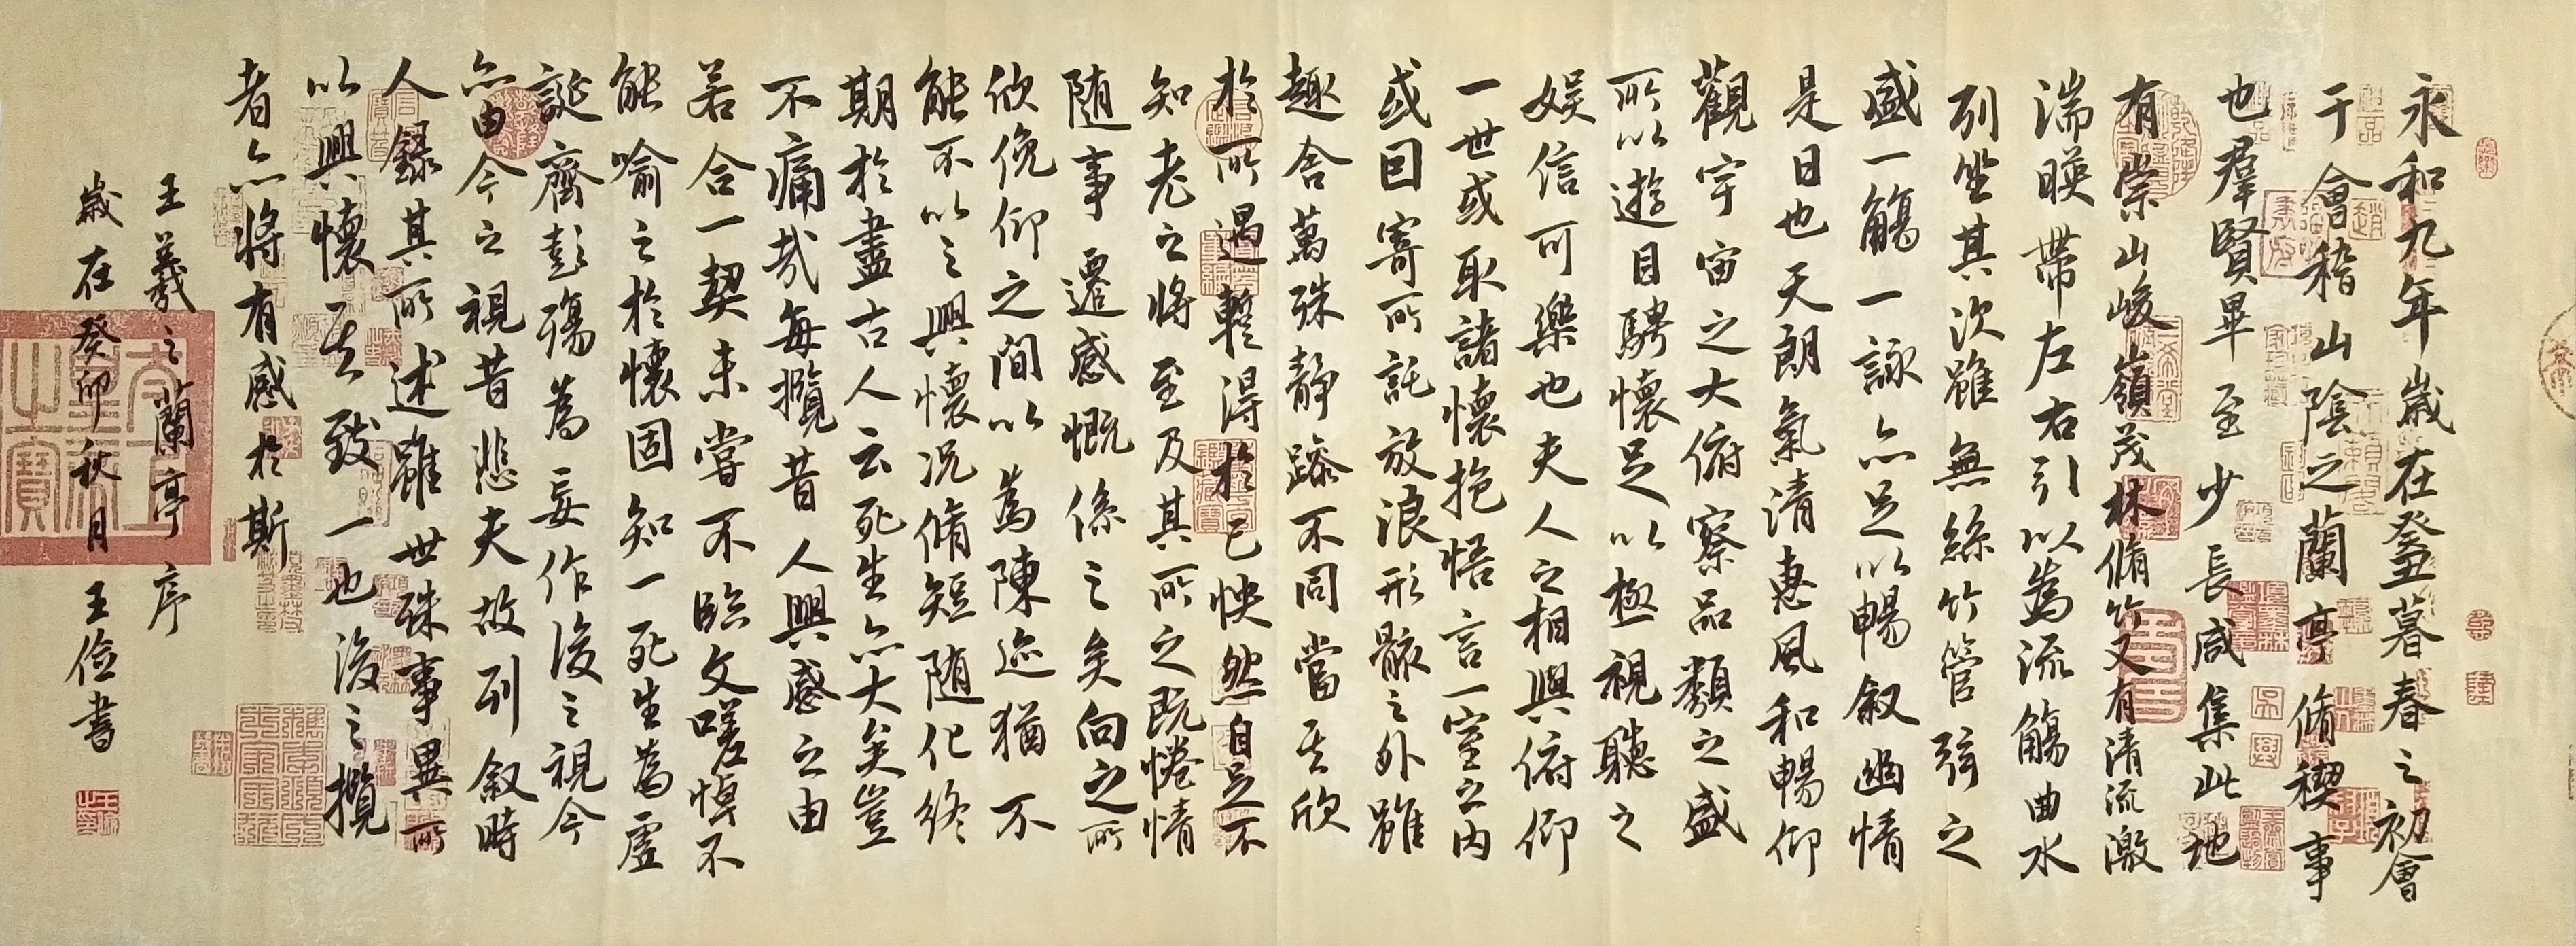 永和九年歲在癸丑暮春之初會
于會稽山陰之蘭亭脩稧事
也羣賢畢至少長咸集此地
有崇山峻嶺茂林脩竹又有清流激
湍暎帶左右引以為流觴曲水
列坐其次雖無絲竹管弦之
盛一觴一詠亦足以暢叙幽情
是日也天朗氣清惠風和暢仰
觀宇宙之大俯察品類之盛
所以遊目騁懷足以極視聽之
娛信可樂也夫人之相與俯仰
一世或取諸懷抱悟言一室之內
或因寄所託放浪形骸之外雖
趣舍萬殊靜躁不同當其欣
於所遇蹔得於己怏然自足不
知老之將至及其所之既惓情
隨事遷感慨係之矣向之所
欣俛仰之間以為陳迹猶不
能不以之興懷況脩短隨化終
期於盡古人云死生亦大矣豈
不痛哉每攬昔人興感之由
若合一契未嘗不臨文嗟悼不
能喻之於懷固知一死生為虛
誕齊彭殤為妄作後之視今
亦由今之視昔悲夫故列叙時
人錄其所述雖世殊事異所
以興懷其致一也後之攬
者亦將有感於斯
王羲之蘭亭序
歲在癸卯秋月王儉書